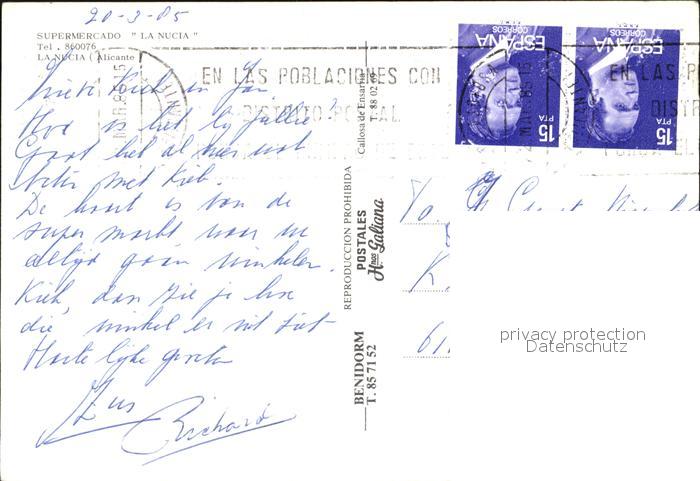 20-3-85
SUPERMERCADO " LA NUCIA "
Tel . 860076
LA NUCIA ( Alicante
EN LAS POBLACIONES CON
DISTRITO POSTAL
Hoe is het bij jullie?
Gaat het al weer wat
beter met Kieb.
De kaart is van de
super markt waar we
altijd gaan winkelen.
Kieb, dan zie je hoe
die winkel er uit ziet
Hartelijke groeten
Richard
Callosa de Ensarriá
T. 88 02
REPRODUCCION PROHIBIDA
POSTALES
Hnos Galiana
BENIDORM
T. 85 71 52
ESPAÑA
CORREOS
15
PTA
ESPAÑA
CORREOS
15
PTA
EN LAS P
DISTR
K.
61
privacy protection
Datenschutz